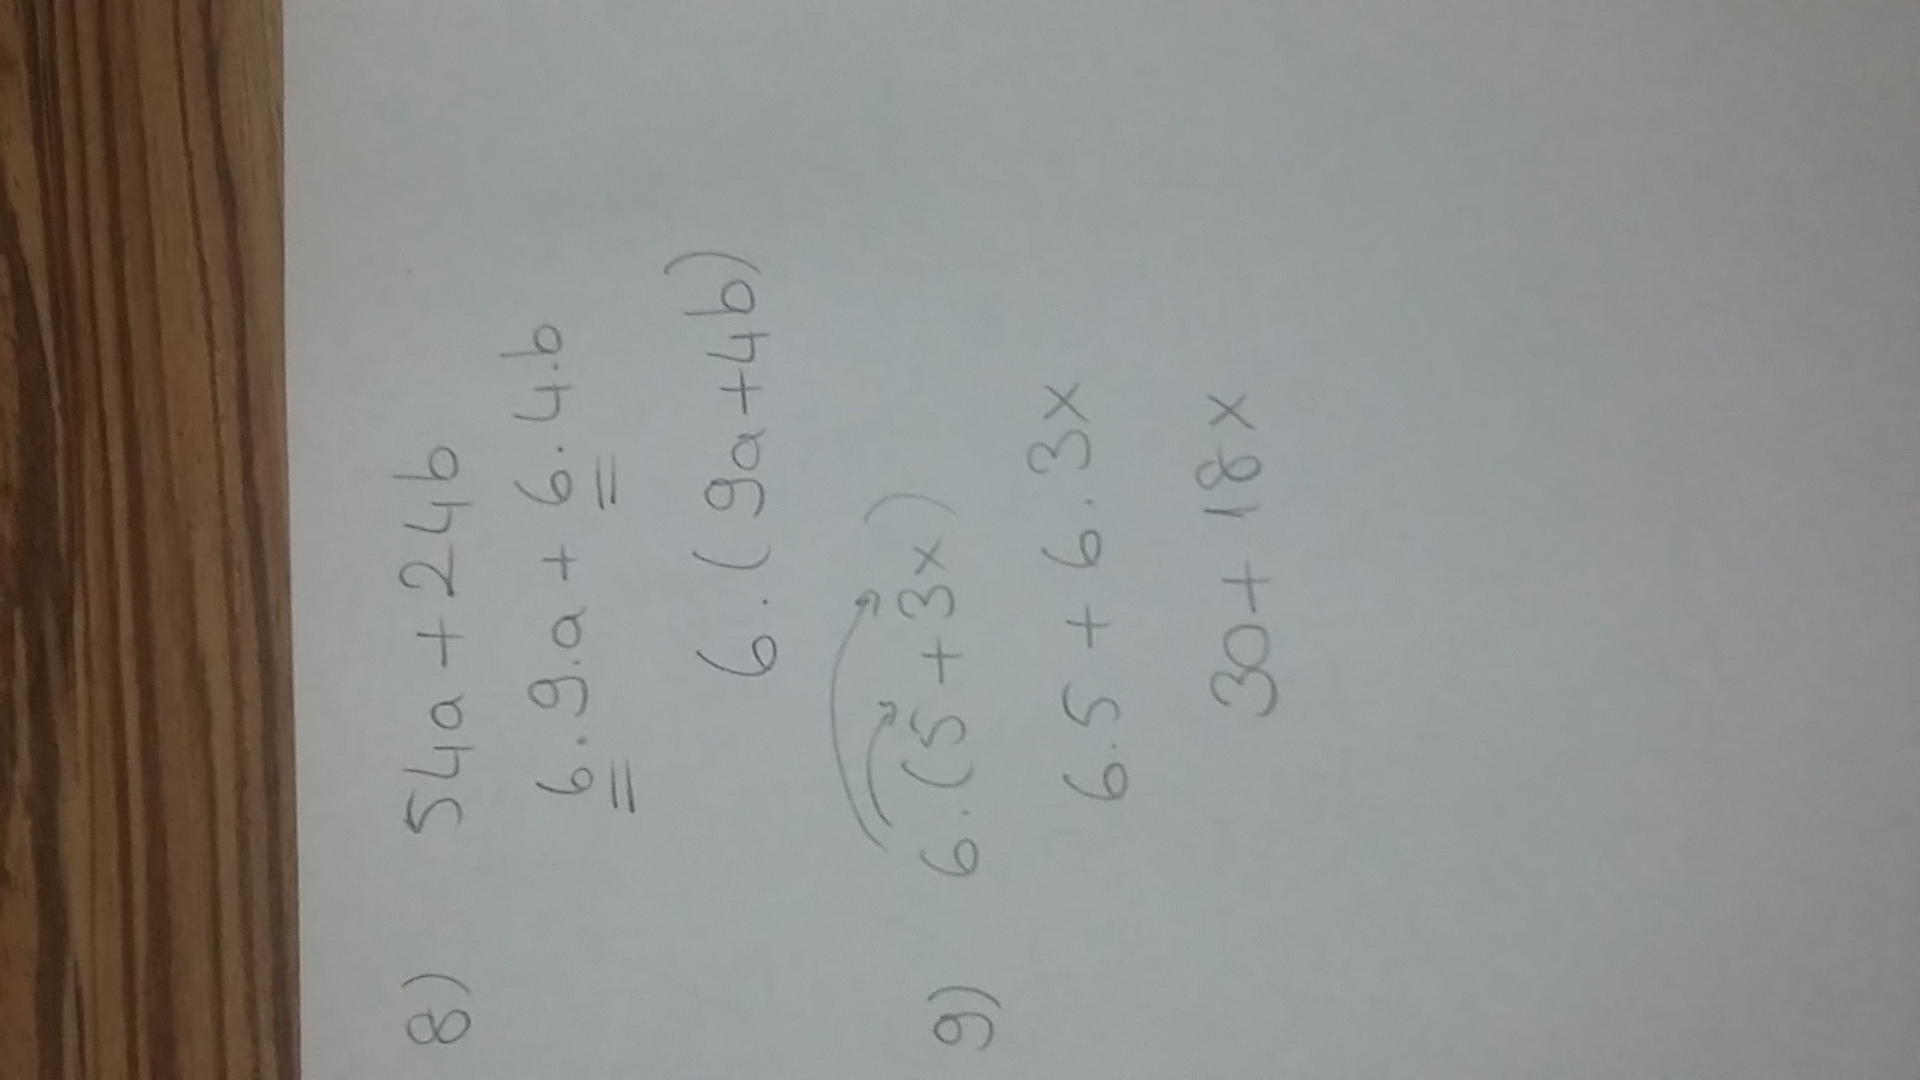 8) 54a + 24b
6.9.a + 6.4.b
6.(9a+4b)
9) 6.(5+3x)
6.5 + 6.3x
30+18x